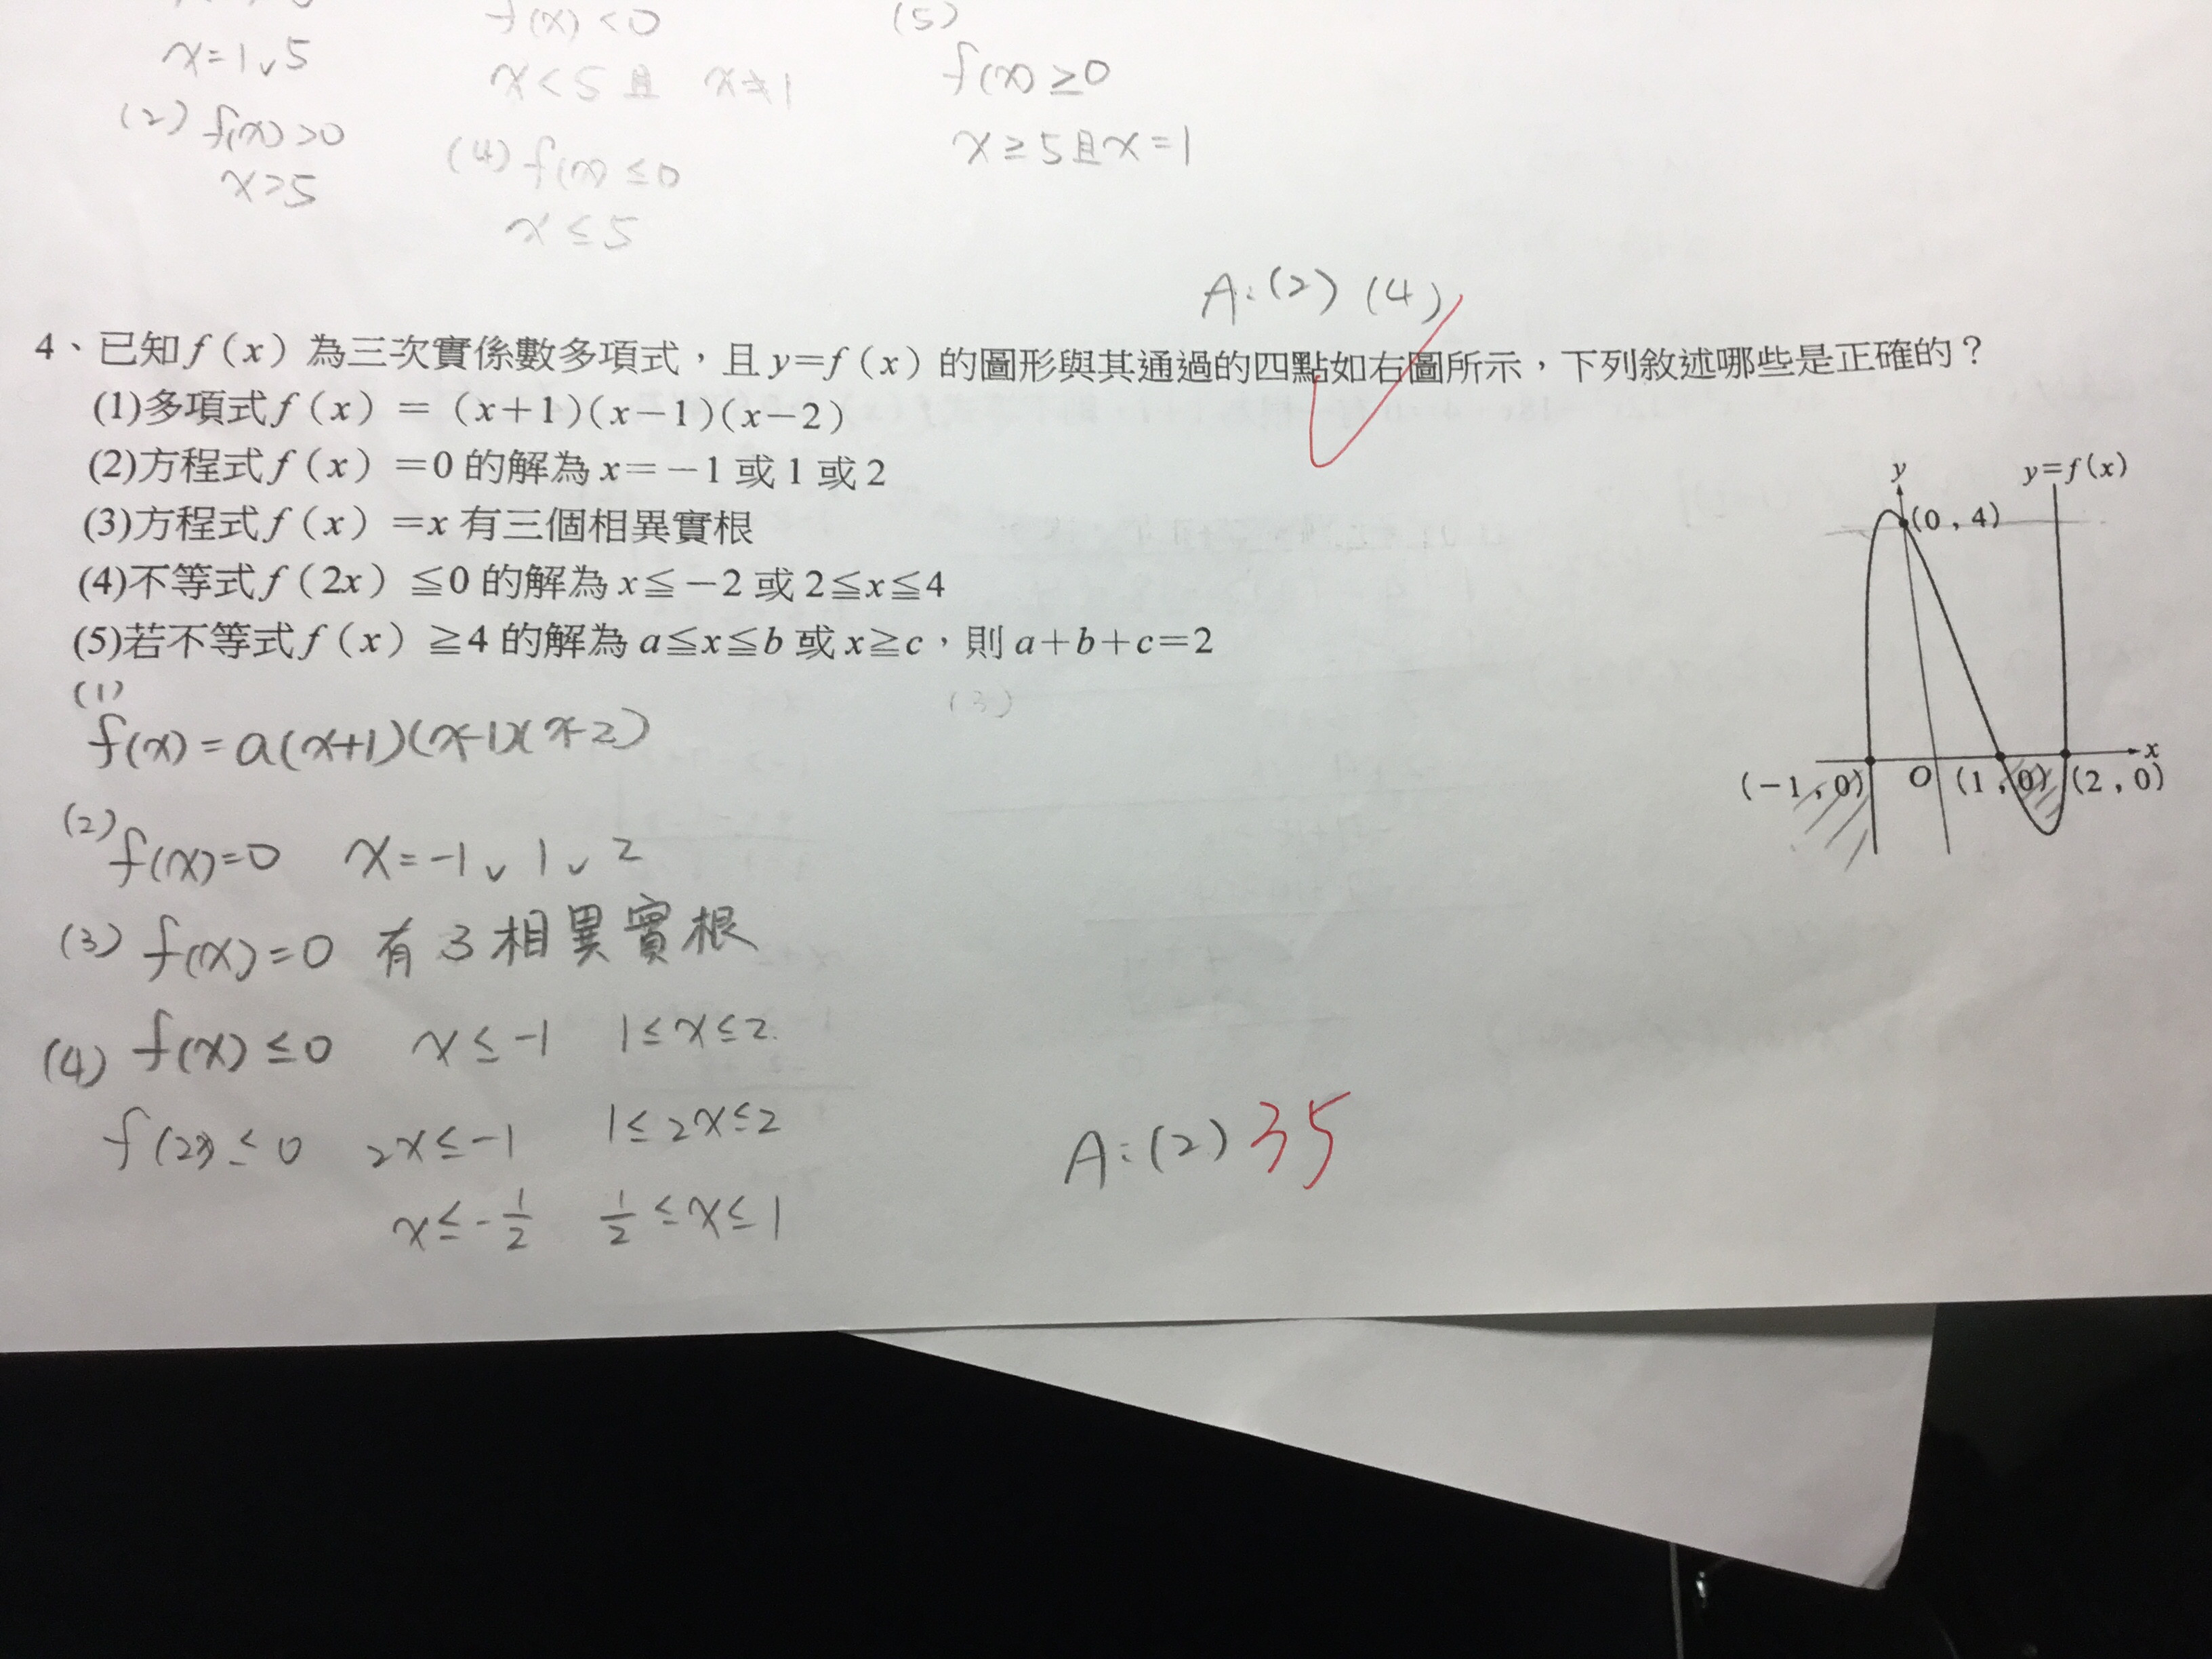 f(x)<0
(5)
x=1∨5
x<5且 x≠1
f(x)≥0
(2) f(x)>0
x≥5且x=1
(4) f(x)≤0
x>5
x≤5
A:(2) (4)
4、已知f(x)為三次實係數多項式，且y=f(x)的圖形與其通過的四點如右圖所示，下列敘述哪些是正確的？
(1)多項式f(x)=(x+1)(x-1)(x-2)
(2)方程式f(x)=0的解為x=-1或1或2
(3)方程式f(x)=x有三個相異實根
(4)不等式f(2x)≦0的解為x≦-2或2≦x≦4
(5)若不等式f(x)≧4的解為a≦x≦b或x≧c，則a+b+c=2
y
y=f(x)
(0,4)
x
(-1,0)
O
(1,0)
(2,0)
(1)
f(x)=a(x+1)(x-1)(x-2)
(3)
(2) f(x)=0 x=-1∨1∨2
(3) f(x)=0 有3相異實根
(4) f(x)≤0 x≤-1 1≤x≤2
f(2x)≤0 2x≤-1 1≤2x≤2
x≤-1/2 1/2≤x≤1
A:(2) 35